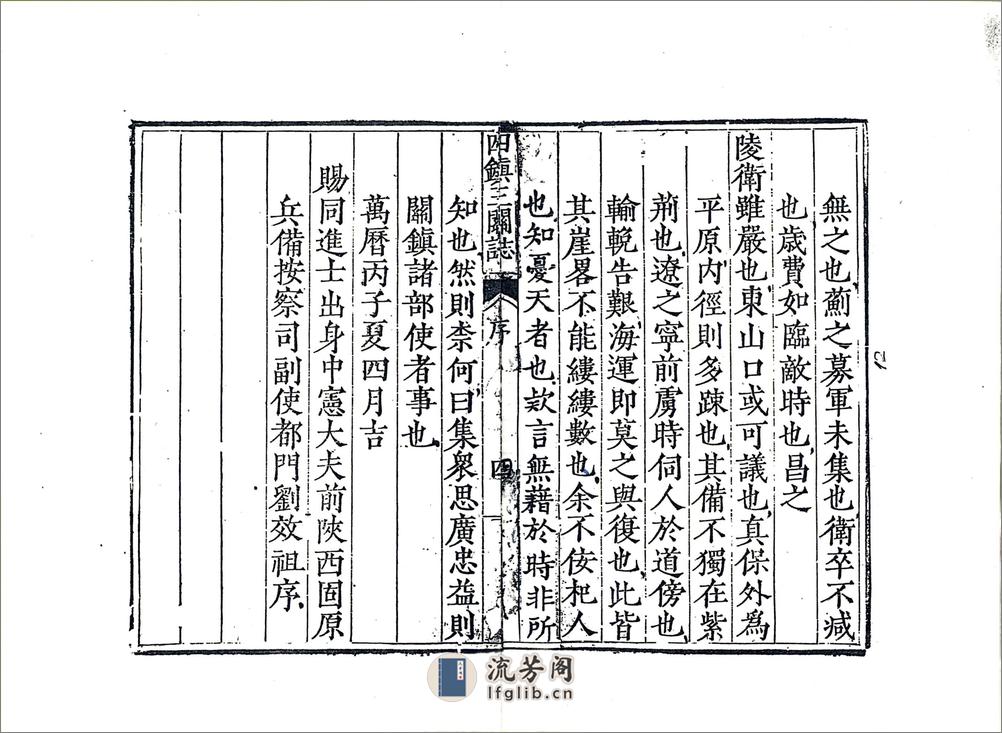 無之也薊之募軍未集也衛卒不減
也歲費如臨敵時也昌之
陵衛雖嚴也東山口或可議也真保外爲
平原内徑則多踈也其備不獨在紫
荊也遼之寧前虜時伺人於道傍也
輸輓告艱海運即莫之與復也此皆
其崖畧不能縷縷數也余不佞杞人
也知憂天者也欵言無藉於時非所
四鎮三關誌
序
四
知也然則柰何曰集衆思廣忠益則
關鎮諸部使者事也
萬曆丙子夏四月吉
賜同進士出身中憲大夫前陝西固原
兵備按察司副使都門劉效祖序
12
流芳阁
lfglib.cn